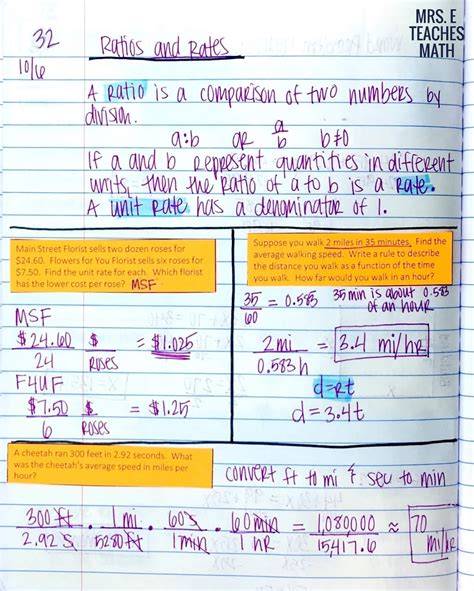 MRS. E
TEACHES
MATH
32
10/6
Ratios and Rates
A Ratio is a comparison of two numbers by
division.
a:b OR a/b b≠0
If a and b represent quantities in different
units, then the ratio of a to b is a Rate.
A unit Rate has a denominator of 1.
Main Street Florist sells two dozen roses for
$24.60. Flowers for You Florist sells six roses for
$7.50. Find the unit rate for each. Which florist
has the lower cost per rose? MSF
MSF
$24.60 $ = $1.025
24 Roses
F4UF
$7.50 $ = $1.25
6 Roses
Suppose you walk 2 miles in 35 minutes. Find the
average walking speed. Write a rule to describe
the distance you walk as a function of the time
you walk. How far would you walk in an hour?
35/60 = 0.583 35 min is about 0.583
of an hour
2 mi = 3.4 mi/hr
0.583 h
d=rt
d=3.4t
A cheetah ran 300 feet in 2.92 seconds. What
was the cheetah's average speed in miles per
hour?
convert ft to mi & sec to min
300 ft . 1 mi . 60 s . 60 min = 1,080,000 ≈ 70
2.92 s 5280 ft 1 min 1 hr 15417.6 mi/hr